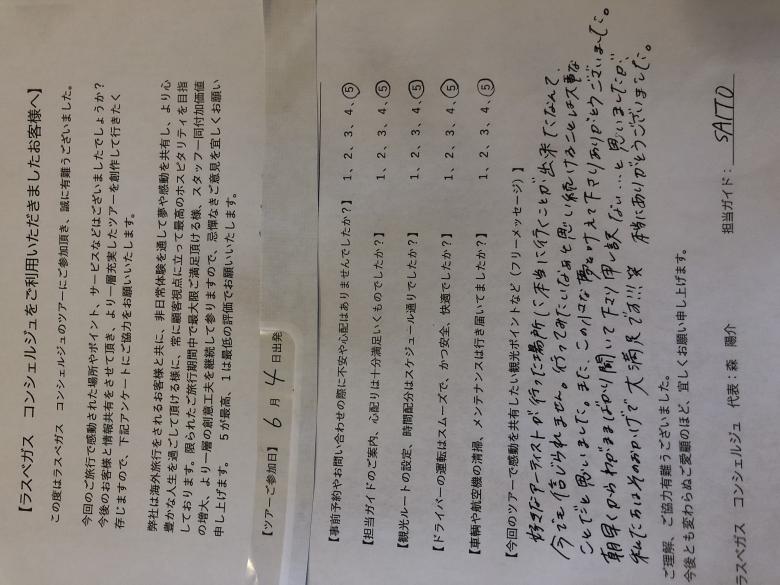 【ラスベガス　コンシェルジュをご利用いただきましたお客様へ】
この度はラスベガス　コンシェルジュのツアーにご参加頂き、誠に有難うございました。
今回のご旅行で感動された場所やポイント、サービスなどはございましたでしょうか？
今後のお客様と情報共有をさせて頂き、より一層充実したツアーを創作して行きたく
存じますので、下記アンケートにご協力をお願いいたします。
弊社は海外旅行をされるお客様と共に、非日常体験を通して夢や感動を共有し、より心
豊かな人生を過ごして頂ける様に、常に顧客視点に立って最高のホスピタリティを目指
しております。限られたご旅行期間中で最大限ご満足頂ける様、スタッフ一同付加価値
の増大、より一層の創意工夫を継続して参りますので、忌憚なきご意見を宜しくお願い
申し上げます。　５が最高、１は最低の評価でお願いいたします。
【ツアーご参加日】　6　月　4　日出発
【事前予約やお問い合わせの際に不安や心配はありませんでしたか？】　1、2、3、4、⑤
【担当ガイドのご案内、心配りは十分満足いくものでしたか？】　1、2、3、4、⑤
【観光ルートの設定、時間配分はスケジュール通りでしたか？】　1、2、3、4、⑤
【ドライバーの運転はスムーズで、かつ安全、快適でしたか？】　1、2、3、4、⑤
【車輌や航空機の清掃、メンテナンスは行き届いてましたか？】　1、2、3、4、⑤
【今回のツアーで感動を共有したい観光ポイントなど（フリーメッセージ）】
好きなアーティストが行った場所に本当に行くことが出来てなんて、
今でも信じられません。行ってみたいなあと思い続けることは大事な
ことだと思いました。また、この様な夢を叶えて下さりありがとうございました。
朝早くからわがままばかり聞いて下さり申し訳ない…と思いましたが、
私たちはそのおかげで大満足です!!!笑　本当にありがとうございました。
ご理解、ご協力有難うございました。
今後とも変わらぬご愛顧のほど、宜しくお願い申し上げます。
ラスベガス　コンシェルジュ　代表：森　陽介　　担当ガイド：　SAITO